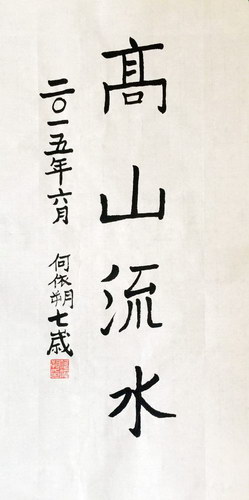 髙山流水
二〇一五年六月
何依朔七歳